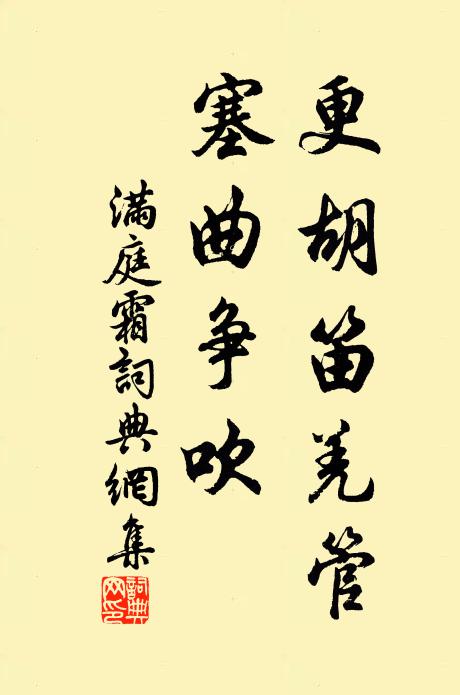 更胡笛羌管
塞曲争吹
满庭霜詞典網集
詞典网印